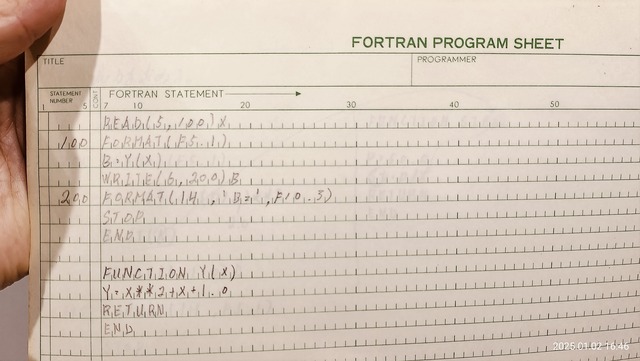 FORTRAN PROGRAM SHEET
TITLE
PROGRAMMER
STATEMENT NUMBER
CONT
FORTRAN STATEMENT
1 5 7 10 20 30 40 50
READ(5,100)X
100 FORMAT(F5.1)
B=Y(X)
WRITE(6,200)B
200 FORMAT(1H ,'B=',F10.3)
STOP
END
FUNCTION Y(X)
Y=X**2+X+1.0
RETURN
END
2025.01.02 16:46